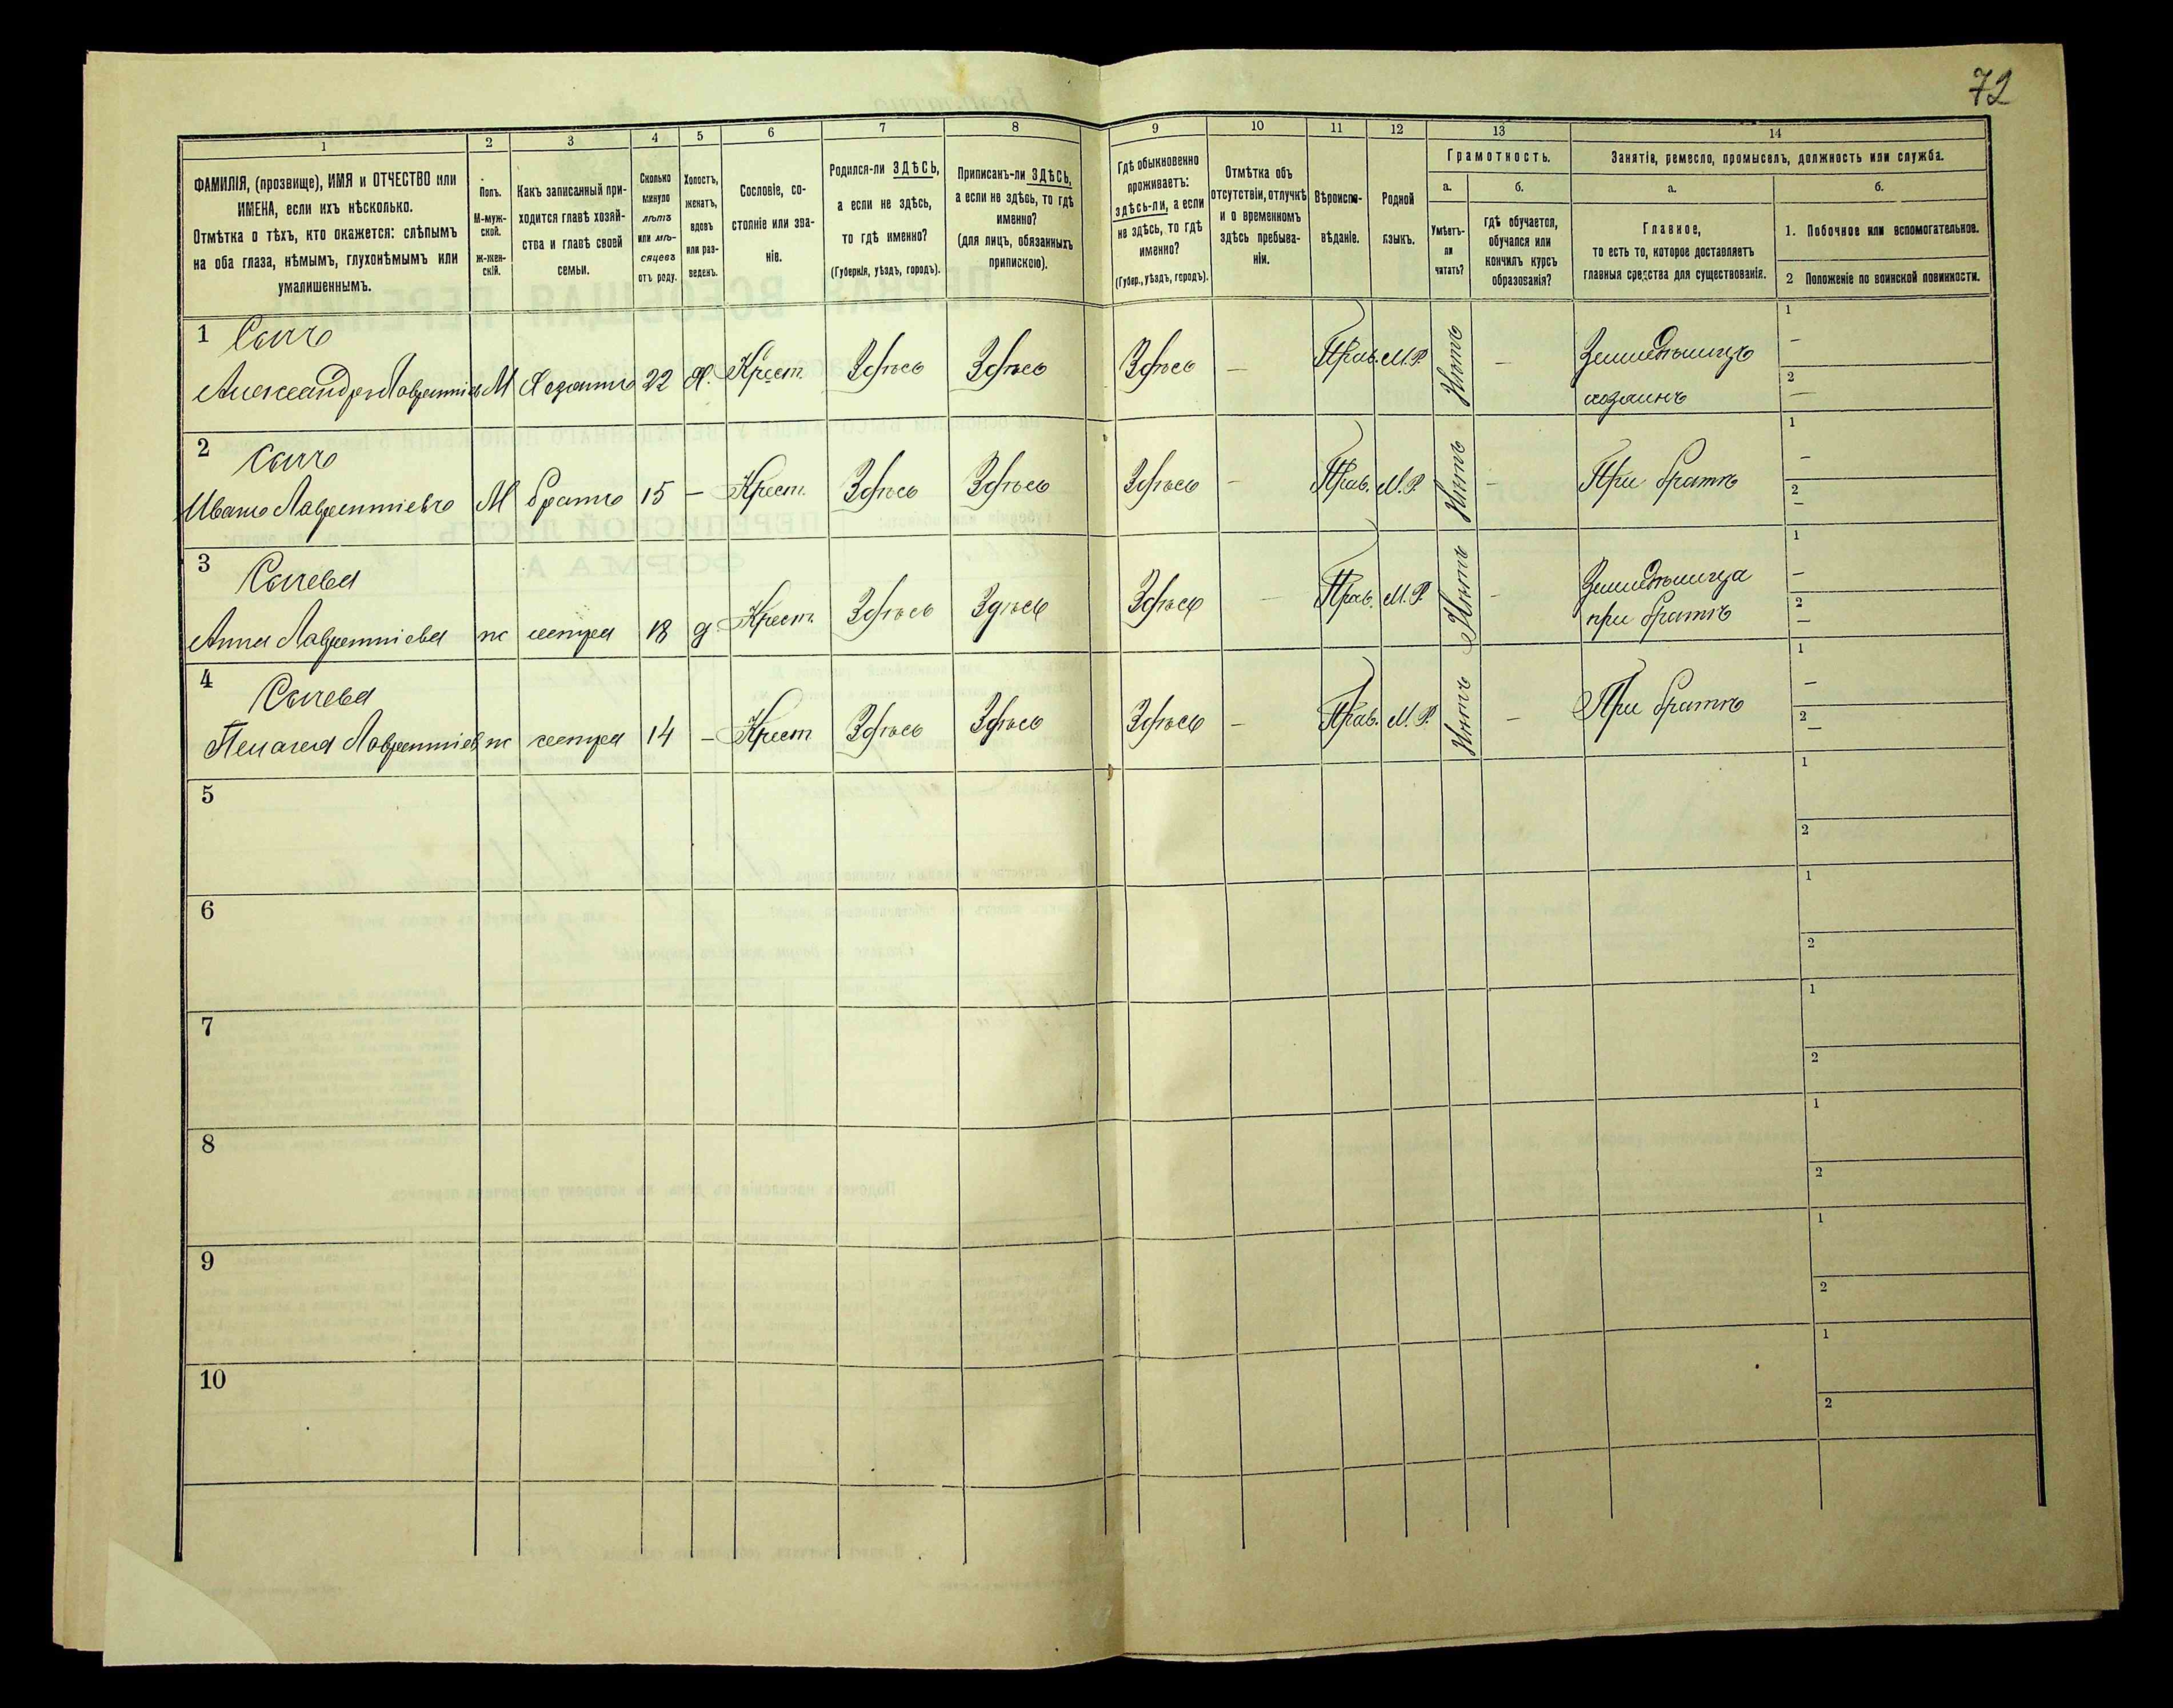 72
1 2 3 4 5 6 7 8 9 10 11 12 13 14
ФАМИЛІЯ, (прозвище), ИМЯ и ОТЧЕСТВО или
ИМЕНА, если ихъ нѣсколько.
Отмѣтка о тѣхъ, кто окажется: слѣпымъ
на оба глаза, нѣмымъ, глухонѣмымъ или
умалишеннымъ.
Полъ.
М-муж-
ской.
Ж-жен-
скій.
Какъ записанный при-
ходится главѣ хозяй-
ства и главѣ своей
семьи.
Сколько
минуло
лѣтъ
или мѣ-
сяцевъ
отъ роду.
Холостъ,
женатъ,
вдовъ
или раз-
веденъ.
Сословіе, со-
стояніе или зва-
ніе.
Родился-ли ЗДѢСЬ,
а если не здѣсь,
то гдѣ именно?
(Губернія, уѣздъ, городъ).
Приписанъ-ли ЗДѢСЬ,
а если не здѣсь, то гдѣ
именно?
(для лицъ, обязанныхъ
припискою).
Гдѣ обыкновенно
проживаетъ:
здѣсь-ли, а если
не здѣсь, то гдѣ
именно?
(Губер., уѣздъ, городъ).
Отмѣтка объ
отсутствіи, отлучкѣ
и о временномъ
здѣсь пребыва-
ніи.
Вѣроиспо-
вѣданіе.
Родной
языкъ.
Грамотность.
а.
Умѣетъ-
ли
читать?
б.
гдѣ обучается,
обучался или
кончилъ курсъ
образованія?
Занятія, ремесло, промыселъ, должность или служба.
а.
Главное,
то есть то, которое доставляетъ
главныя средства для существованія.
б.
1. Побочное или вспомогательное.
2 Положеніе по воинской повинности.
1
Александръ М Хозяинъ 22 Х. Крест. Здѣсь Здѣсь Здѣсь — Прав. М.Р. Нѣтъ — Земледѣлецъ
хозяинъ
1 —
2 —
2
Иванъ Лаврентіевъ М братъ 15 — Крест. Здѣсь Здѣсь Здѣсь — Прав. М.Р. Нѣтъ — При братѣ
1 —
2 —
3
Анна Лаврентіева ж сестра 18 д Крест. Здѣсь Здѣсь Здѣсь — Прав. М.Р. Нѣтъ —
при братѣ
1 —
2 —
4
Пелагея ж сестра 14 — Крест Здѣсь Здѣсь Здѣсь — Прав. М.Р. Нѣтъ — При братѣ
1 —
2 —
5
1
2
6
1
2
7
1
2
8
1
2
9
1
2
10
1
2